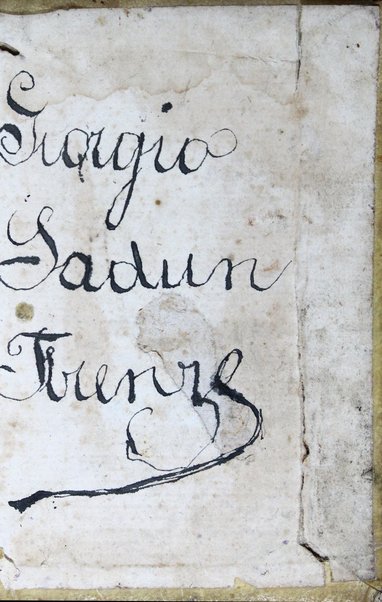 Giorgio
Sadun
Firenze